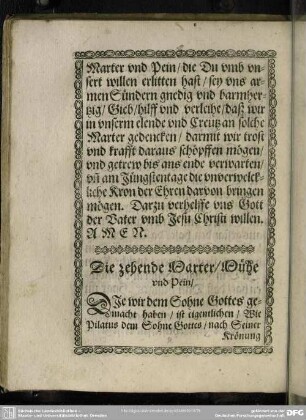 Marter vnd Pein / die Du vmb vn-
sert willen erlitten hast / sey vns ar-
men Sündern gnedig vnd barmher-
tzig / Gieb / hilff vnd verleihe / daß wir
in vnserm elende vnd Creutz an solche
Marter gedencken / darmit wir trost
vnd krafft daraus schöpffen mögen /
vnd getrew bis ans ende verwarten /
vn̄ am Jüngstentage die vnverwelck-
liche Kron der Ehren darvon bringen
mögen. Darzu verhelffe vns Gott
der Vater vmb Jesu Christi willen.
A M E N.
Die zehende Marter / Mühe
vnd Pein /
DIe wir dem Sohne Gottes ge-
macht haben / ist eigentlichen / Wie
Pilatus dem Sohne Gottes / nach Seiner
Krönung
DFG